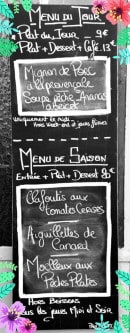 Menu du Jour
Plat du Jour 9€
Plat + Dessert + Café 13€
Mignon de Porc
à la provençale
Soupe pêche Ananas
abricot
Uniquement le midi
Hors week-end et jours fériés
Menu de Saison
Entrée + Plat + Dessert 20€
Clafoutis aux
Tomates Cerises
Aiguillettes de
Canard
Moelleux aux
Pister Plates
Hors Boissons
Tous les jours Midi et Soir